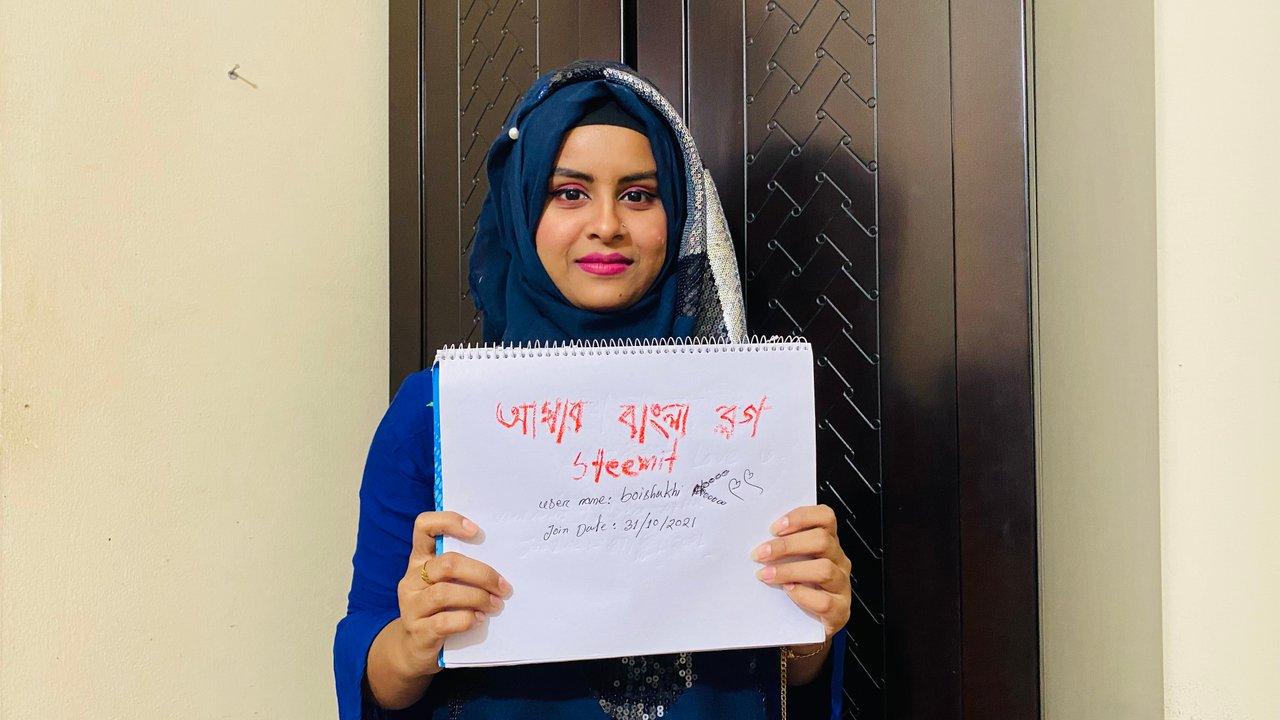 আমার বাংলা ব্লগ
Steemit
user name: boishakhi
Join Date: 31/10/2021